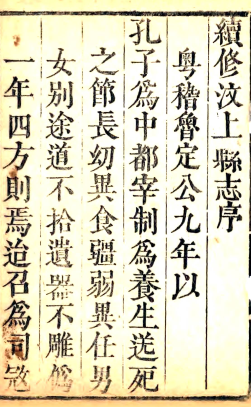 續修汶上縣志序
粵稽魯定公九年以
孔子爲中都宰制爲養生送死
之節長幼異食疆弱異任男
女別途道不拾遺器不雕僞
一年四方則焉迨召爲司寇